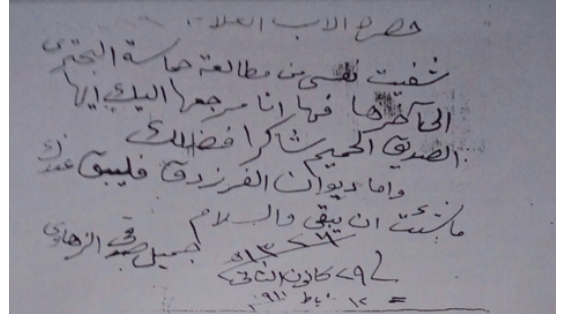 حضرة الاب العلامة
شفيت نفسي من مطالعة حماسة البحتري
الى آخرها فها انا مرجعها اليك ايها
الصديق الحميم شاكرا فضلك
واما ديوان الفرزدق فليبق عندك
ما شئت ان يبقى والسلام
جميل صدقي الزهاوي
١٣٢٦
٢٩ كانون الثاني
= ١٢ شباط ٩١١